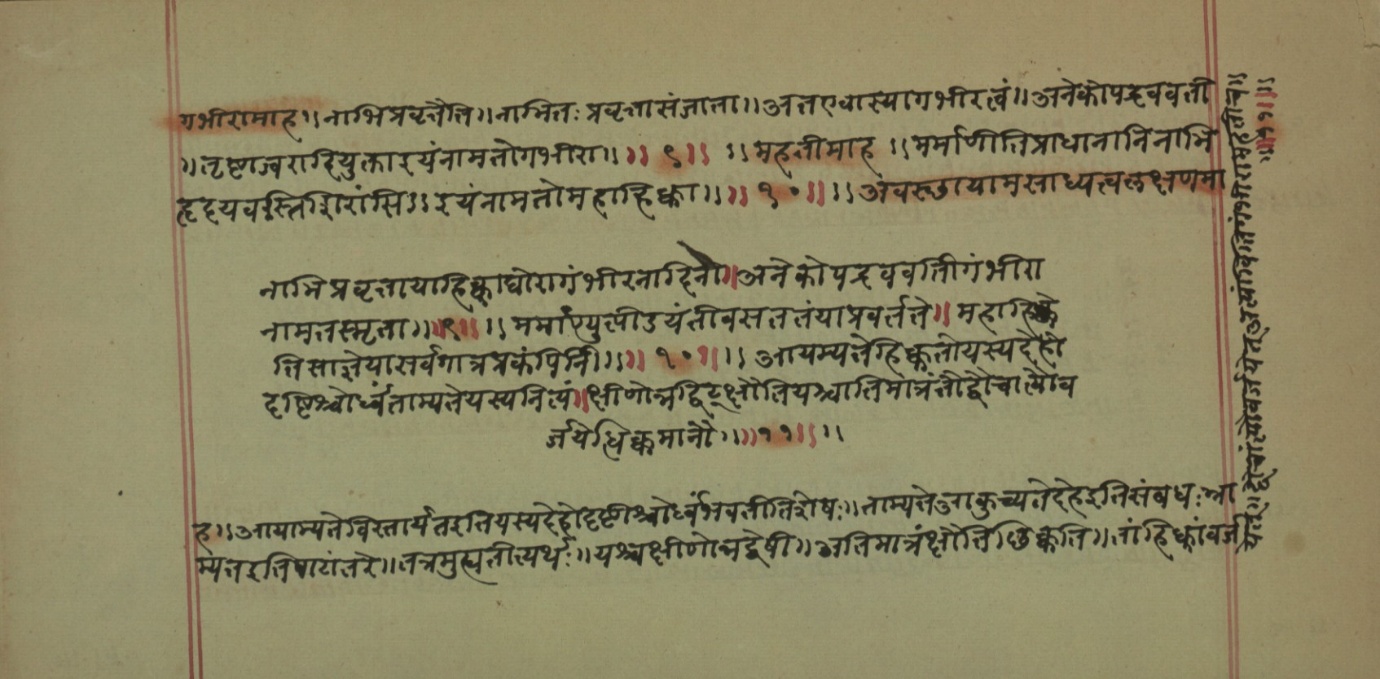 गभीरामाह॥नाभिप्रवृत्तेति॥नाभितःप्रवृत्तासंजाता॥अतएवास्यागभीरत्वं॥अनेकोपद्रववती
॥तृष्णाज्वरादियुक्ताइयंनामतोगभीरा॥॥९॥॥महतीमाह॥मर्माणीतिप्राधानानिनाभि
हृदयवस्तिशिरांसि॥इयंनामतोमहाहिक्का॥॥१०॥॥अवस्छायामसाध्यत्वलक्षणमा
नाभिप्रवृत्तायाहिक्काघोरागंभीरनादिनी॥अनेकोपद्रववतीगंभीरा
नामतस्मृता॥॥९॥॥मर्माण्युत्पीडयंतीवसततंयाप्रवर्तते॥महाहिक्के
तिसाज्ञेयासर्वगात्रप्रकंपिनी॥॥१०॥॥आयम्यतेहिक्कतोयस्यदेहो
दृष्टिश्चोर्ध्वंताम्यतेयस्यनित्यं॥क्षीणोन्नद्विट्क्षौतियश्चातिमात्रंतौद्वौचांत्यौव
र्जयेद्धिक्कमानौ॥॥११॥॥
ह॥आयाम्यतेविस्तार्यतइतियस्यदेहोदृष्टीश्चोर्ध्वंभवतीतिशेषः॥ताम्यतेआकुच्यतेदेहइतिसंबधःता
म्यतइतिपाठांतरे॥तत्रमुह्यतीत्यर्थः॥यश्चक्षीणोन्नद्वेषी॥अतिमात्रंक्षौतिछिक्कति॥तांहिक्कांवर्ज
येत्॥द्वौचांत्यौवर्जयेत्अंत्यांवितिगंभीरामहतीच॥
॥११॥॥